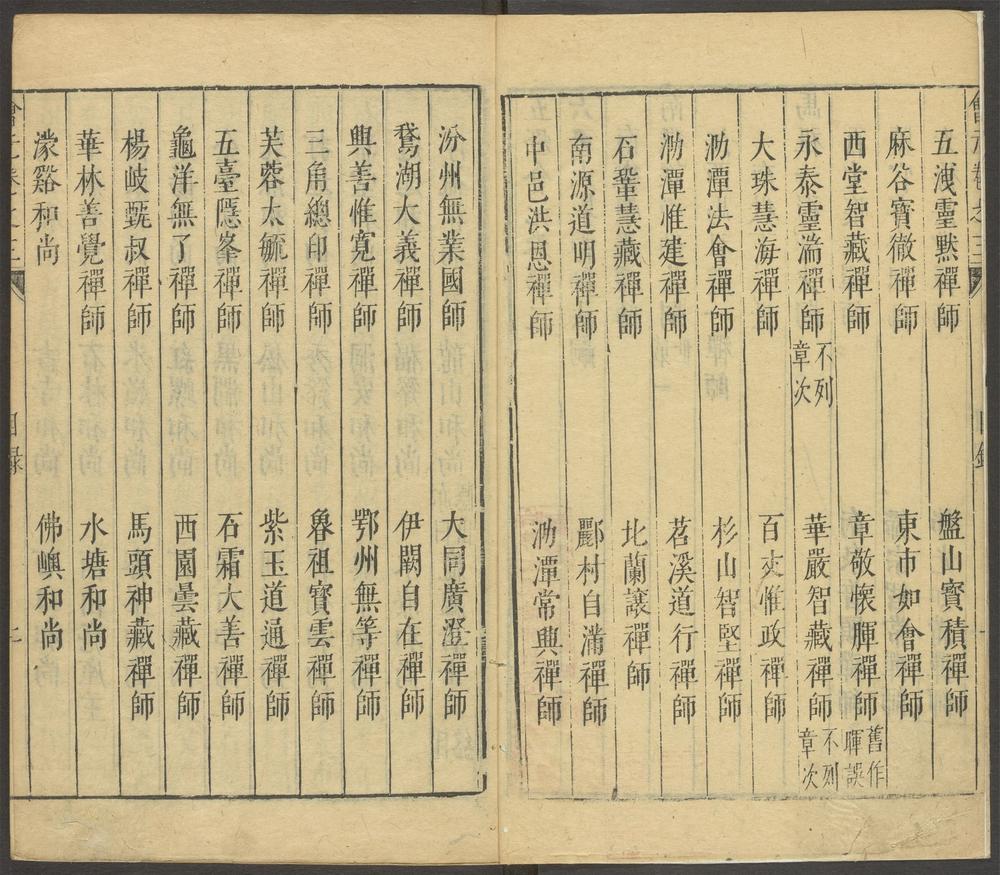 五洩靈黙禪師　盤山寶積禪師
麻谷寶徹禪師　東市如會禪師
西堂智藏禪師　章敬懷腪禪師舊作暉誤
永泰靈湍禪師不列章次　華嚴智藏禪師不列章次
大珠慧海禪師　百丈惟政禪師
泐潭法會禪師　杉山智堅禪師
泐潭惟建禪師　茗溪道行禪師
石鞏慧藏禪師　北蘭讓禪師
南源道明禪師　酈村自滿禪師
中邑洪恩禪師　泐潭常興禪師
汾州無業國師　大同廣澄禪師
鵞湖大義禪師　伊闕自在禪師
興善惟寬禪師　鄂州無等禪師
三角總印禪師　魯祖寶雲禪師
芙蓉太毓禪師　紫玉道通禪師
五臺隱峯禪師　石霜大善禪師
龜洋無了禪師　西園曇藏禪師
楊岐甄叔禪師　馬頭神藏禪師
華林善覺禪師　水塘和尚
濛谿和尚　佛㠗和尚
目録